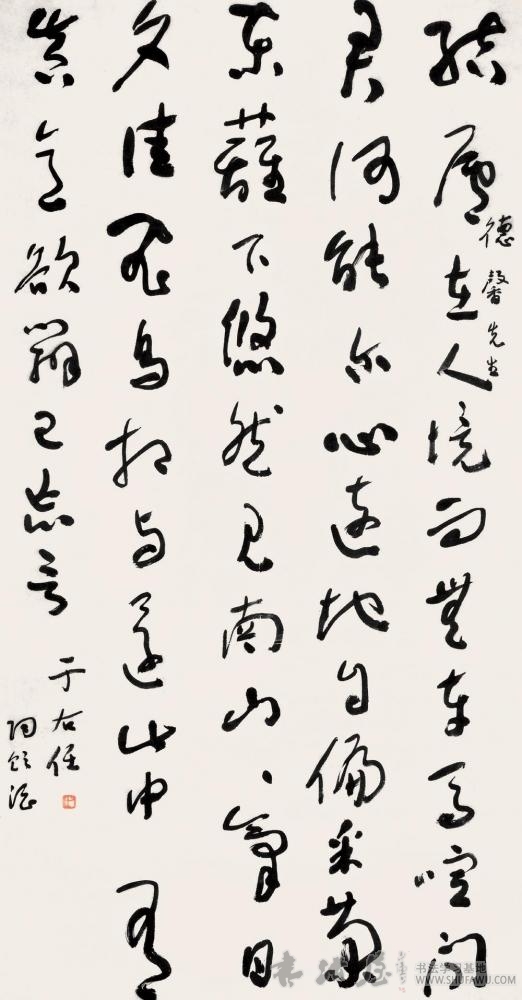 結廬在人境而無車馬喧問
德馨先生
君何能尔心遠地自偏采菊
東蘺下悠然見南山、氣日
夕佳飛鳥相与還此中有
真意欲辨已忘言
于右任
陶飲酒
书法学习基地
WWW.SHUFAWU.COM